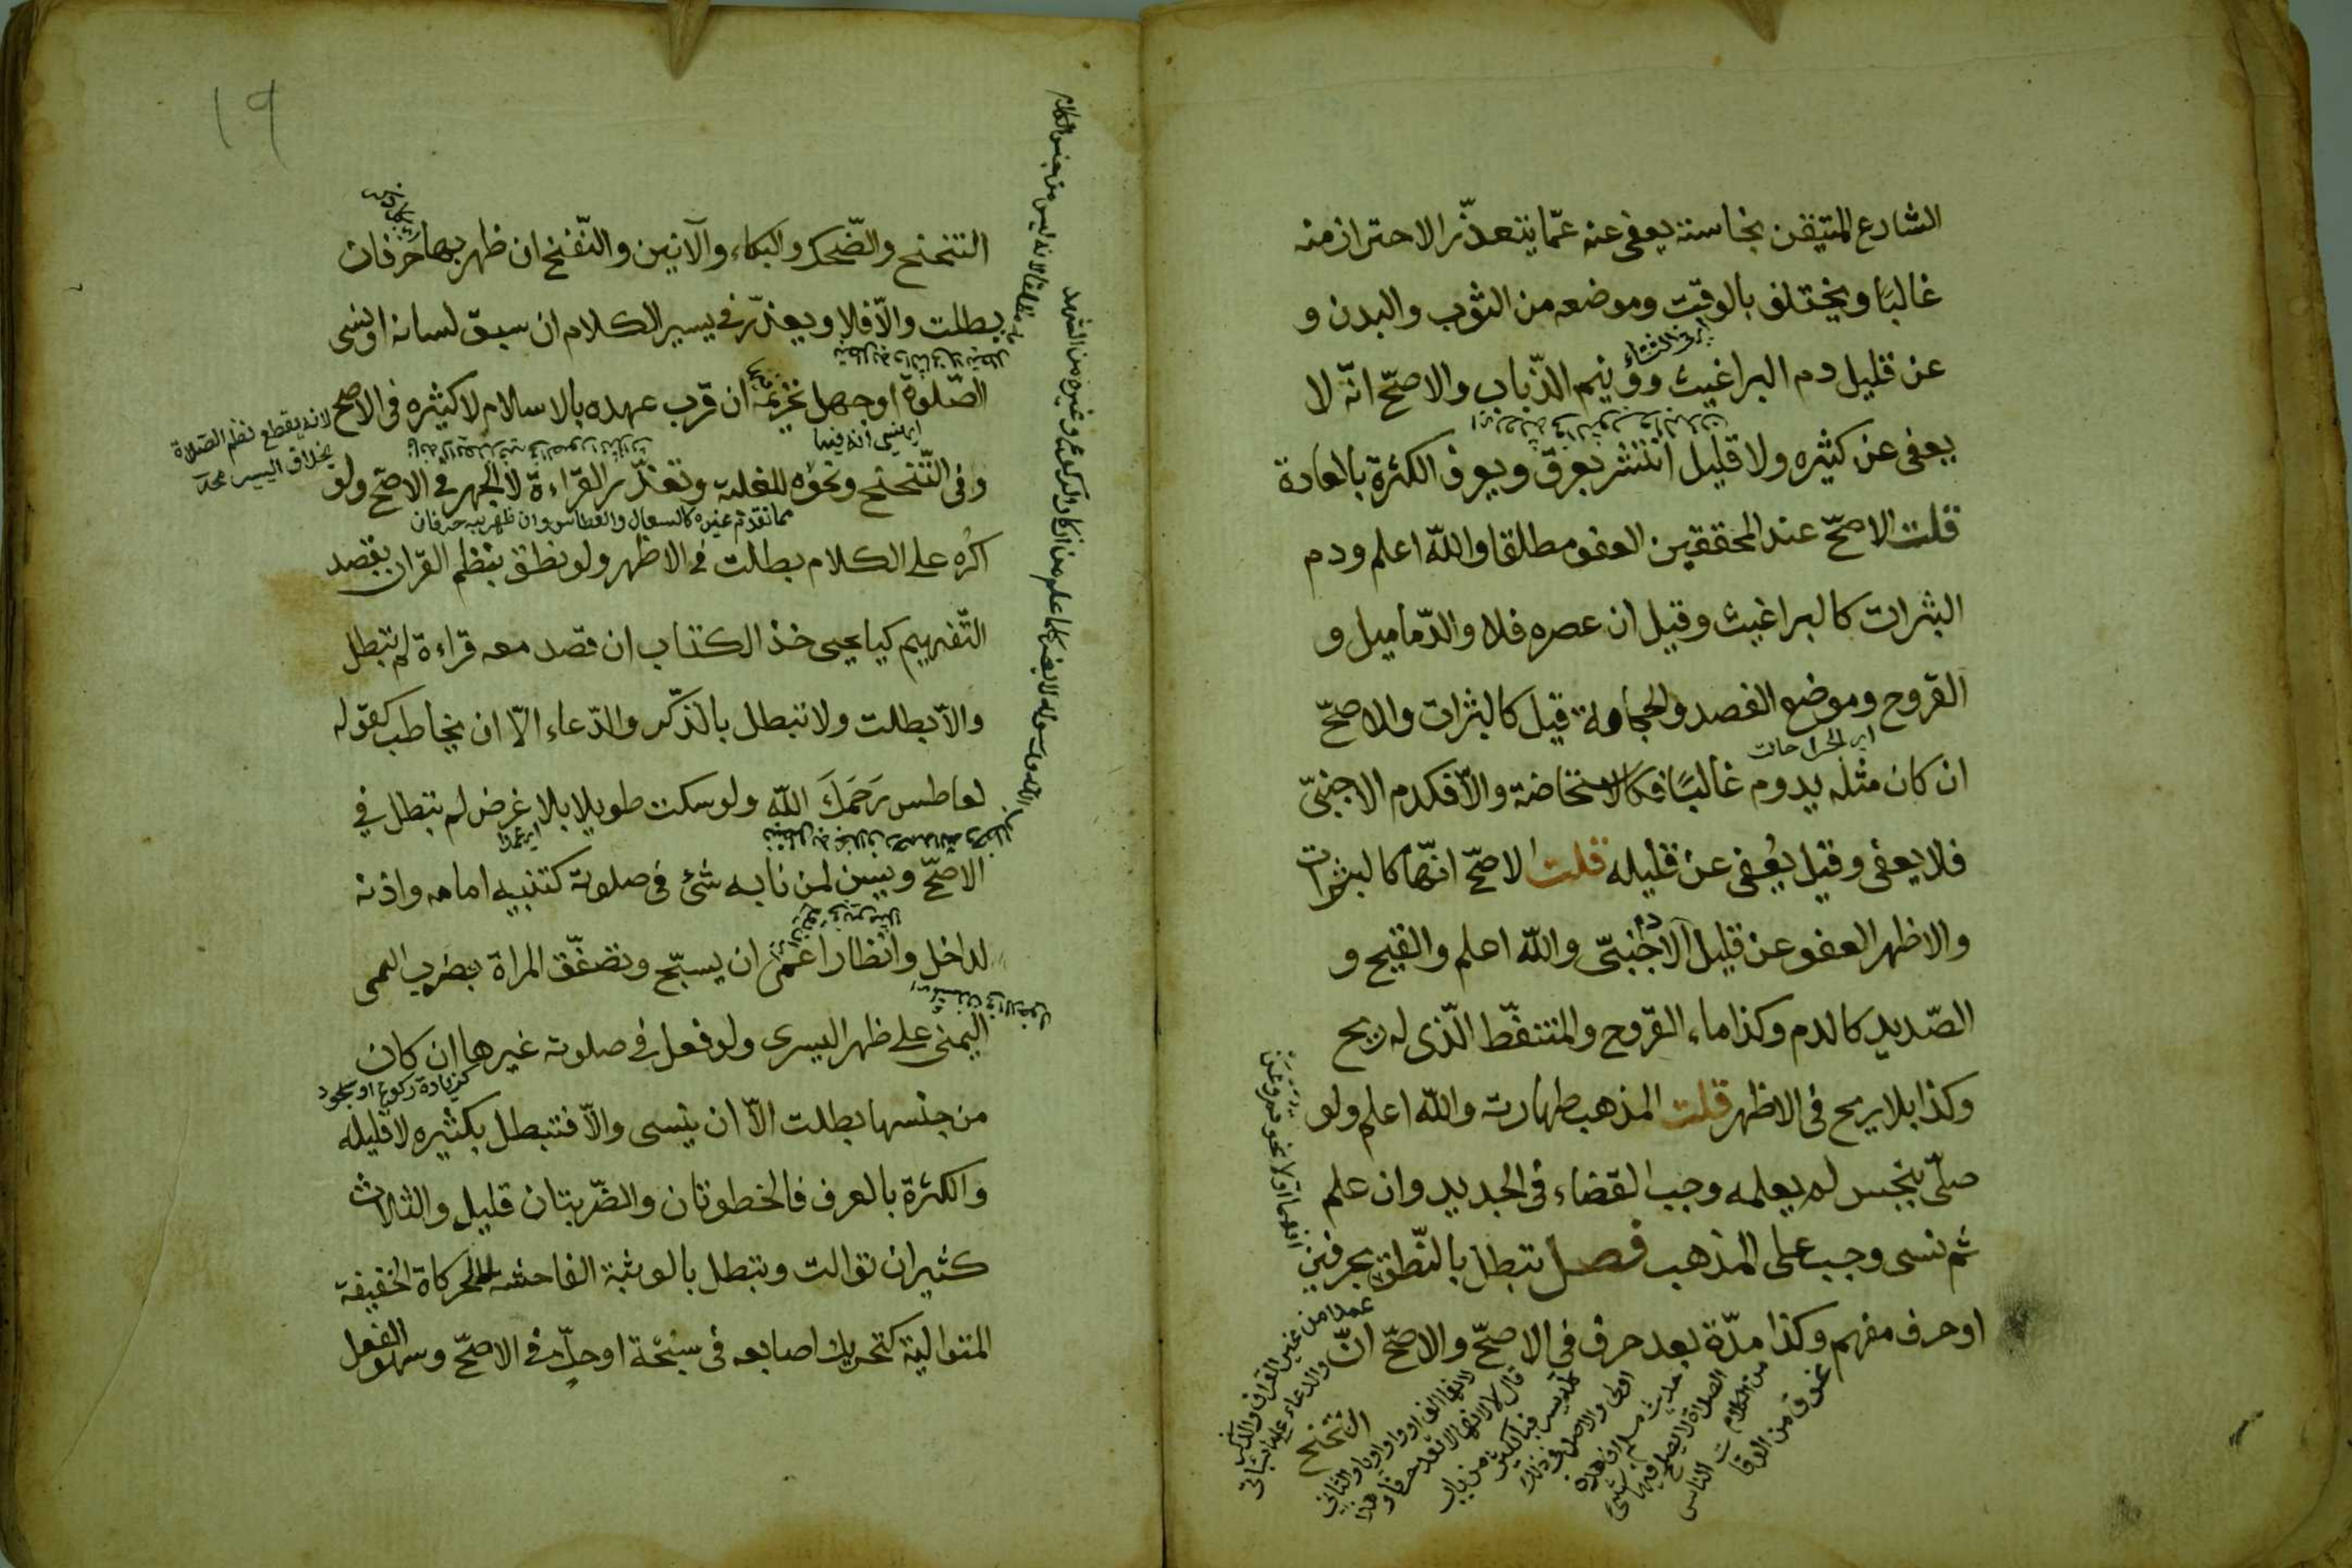 الشارع المتيقن نجاسته يعفى عنه عمّا يتعذّر الاحتراز منه
غالبًا ويختلف بالوقت وموضعه من الثوب والبدن و
اي في الشتاء
عن قليل دم البراغيث وونيم الذّباب والاصحّ انّه لا
يعفى عن كثيره ولا قليل انتشر بعرق ويعرف الكثرة بالعادة
قلت الاصحّ عند المحققين العفو مطلقا والله اعلم ودم
البثرات كالبراغيث وقيل ان عصره فلا والدّماميل و
القروح وموضع الفصد والحجامة قيل كالبثرات والاصحّ
اي الجراحات
ان كان مثله يدوم غالبًا فكالاستحاضة والّا فكدم الاجنبىّ
فلا يعفى وقيل يُعفى عن قليله قلت الاصحّ انّها كالبثرات
والاظهر العفو عن قليل دم الاجنبىّ والله اعلم والقيح و
الصّديد كالدم وكذا ماء القروح والمتنفّط الّذى له ريح
وكذا بلا ريح فى الاظهر قلت المذهب طهارته والله اعلم ولو
صلّى بنجس لم يعلمه وجب القضاء فى الجديد وان علم
ثم نسى وجب على المذهب فصل تبطل بالنّطق بحرفين
افهما اولا نحو قم وعن
اوحرف مفهم وكذا مدّة بعد حرف فى الاصحّ والاصحّ انّ
عمدا من غير القرآن والذكر
والدعاء على ما سيأتى
التنحنح
19
التنحنح والضّحك والبكاء والآنين والنّفخ ان ظهر بها حَرفان
بطلت والّا فلا ويعذر فى يسير الكلام ان سبق لسانه اونسى
الصّلوة اوجهل تحريمه ان قرب عهده بالاسلام لا كثيره فى الاصح
لانه يقطع نظم الصّلاة
بخلاف اليسير محلّى
وفى التّنحنح ونحوه للغلبة وتعذّر القراءة لا الجهر فى الاصحّ ولو
مما تقدم غيره كالسعال والعطاس وان ظهر به حرفان
اكره على الكلام بطلت فى الاظهر ولو نطق بنظم القرآن بقصد
التّفهيم كيا يحيى خذ الكتاب ان قصد معه قراءة لم تبطل
والّا بطلت ولا تبطل بالذّكر والدّعاء الّا ان يخاطب كقوله
لعاطس رَحِمَكَ الله ولو سكت طويلا بلا غرض لم تبطل في
اي عمدا
الاصحّ ويسن لمن نابه شئ فى صلوته كتنبيه امامه واذنه
لداخل وانظار اعمى ان يسبّح وتصفّق المراة بضرب
اليمنى على ظهر اليسرى ولو فعل فى صلوته غيرها ان كان
كزيادة ركوع او سجود
من جنسها بطلت الّا ان ينسى والّا فتبطل بكثيره لا قليله
والكثرة بالعرف فالخطوتان والضّربتان قليل والثلاث
كثير ان توالت وتبطل بالوثبة الفاحشة لا الحركاة الخفيفة
المتوالية كتحريك اصابعه فى سبحة اوحكّ فى الاصحّ وسهو الفعل